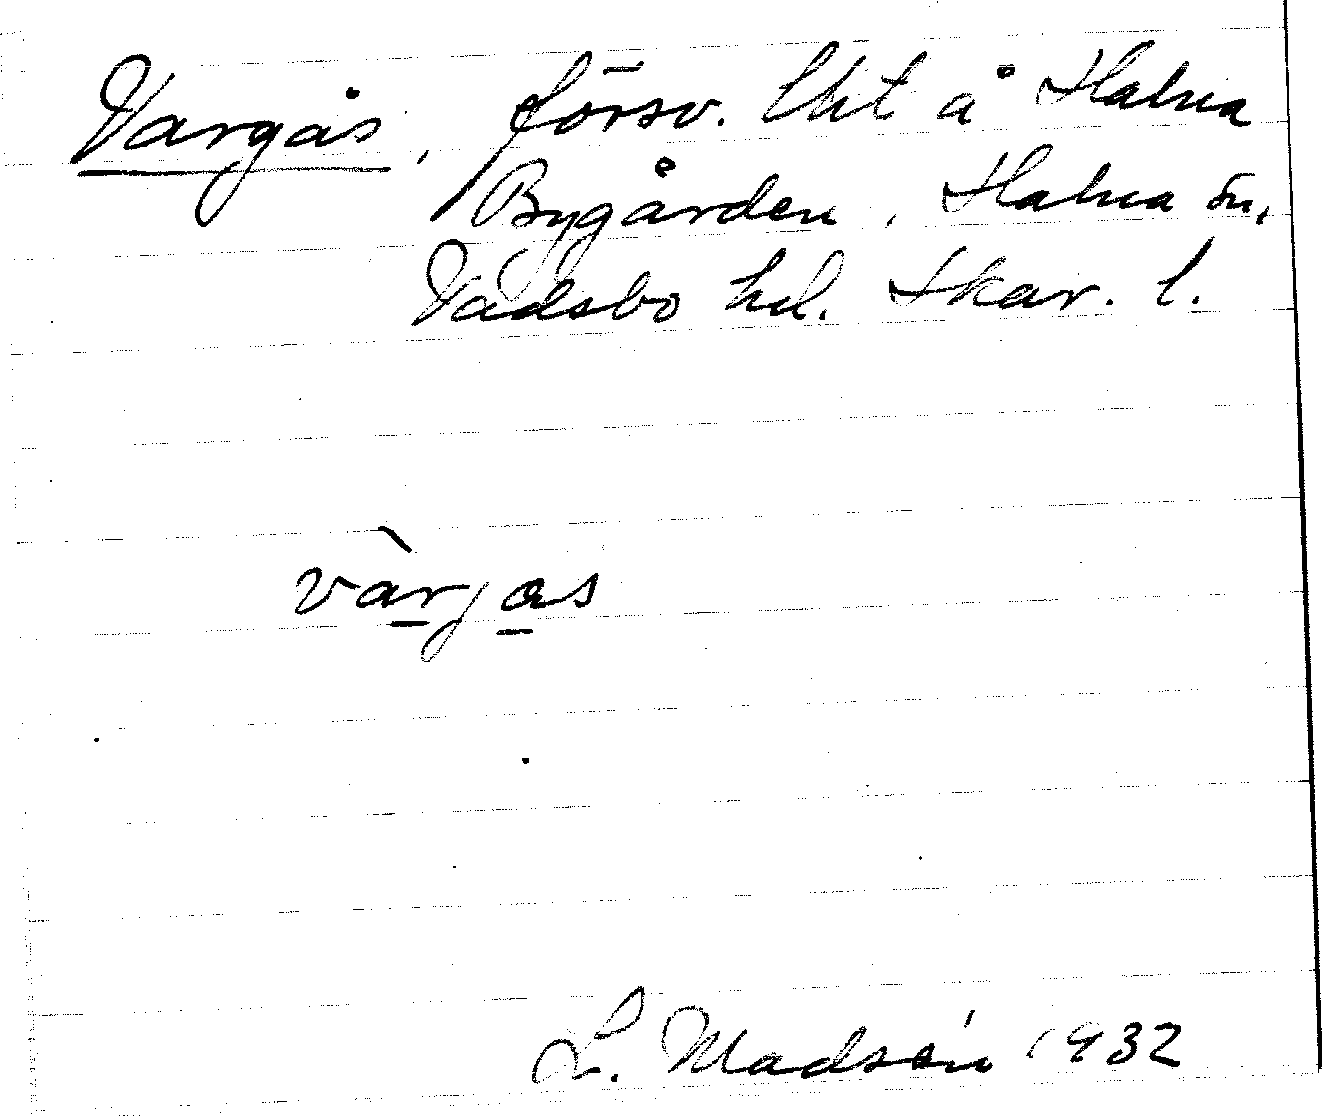 Vargås, försv. lht å Halna
Bygården, Halna sn,
Vadsbo hd. Skar. l.
vàrjas
L. Madsén 1932